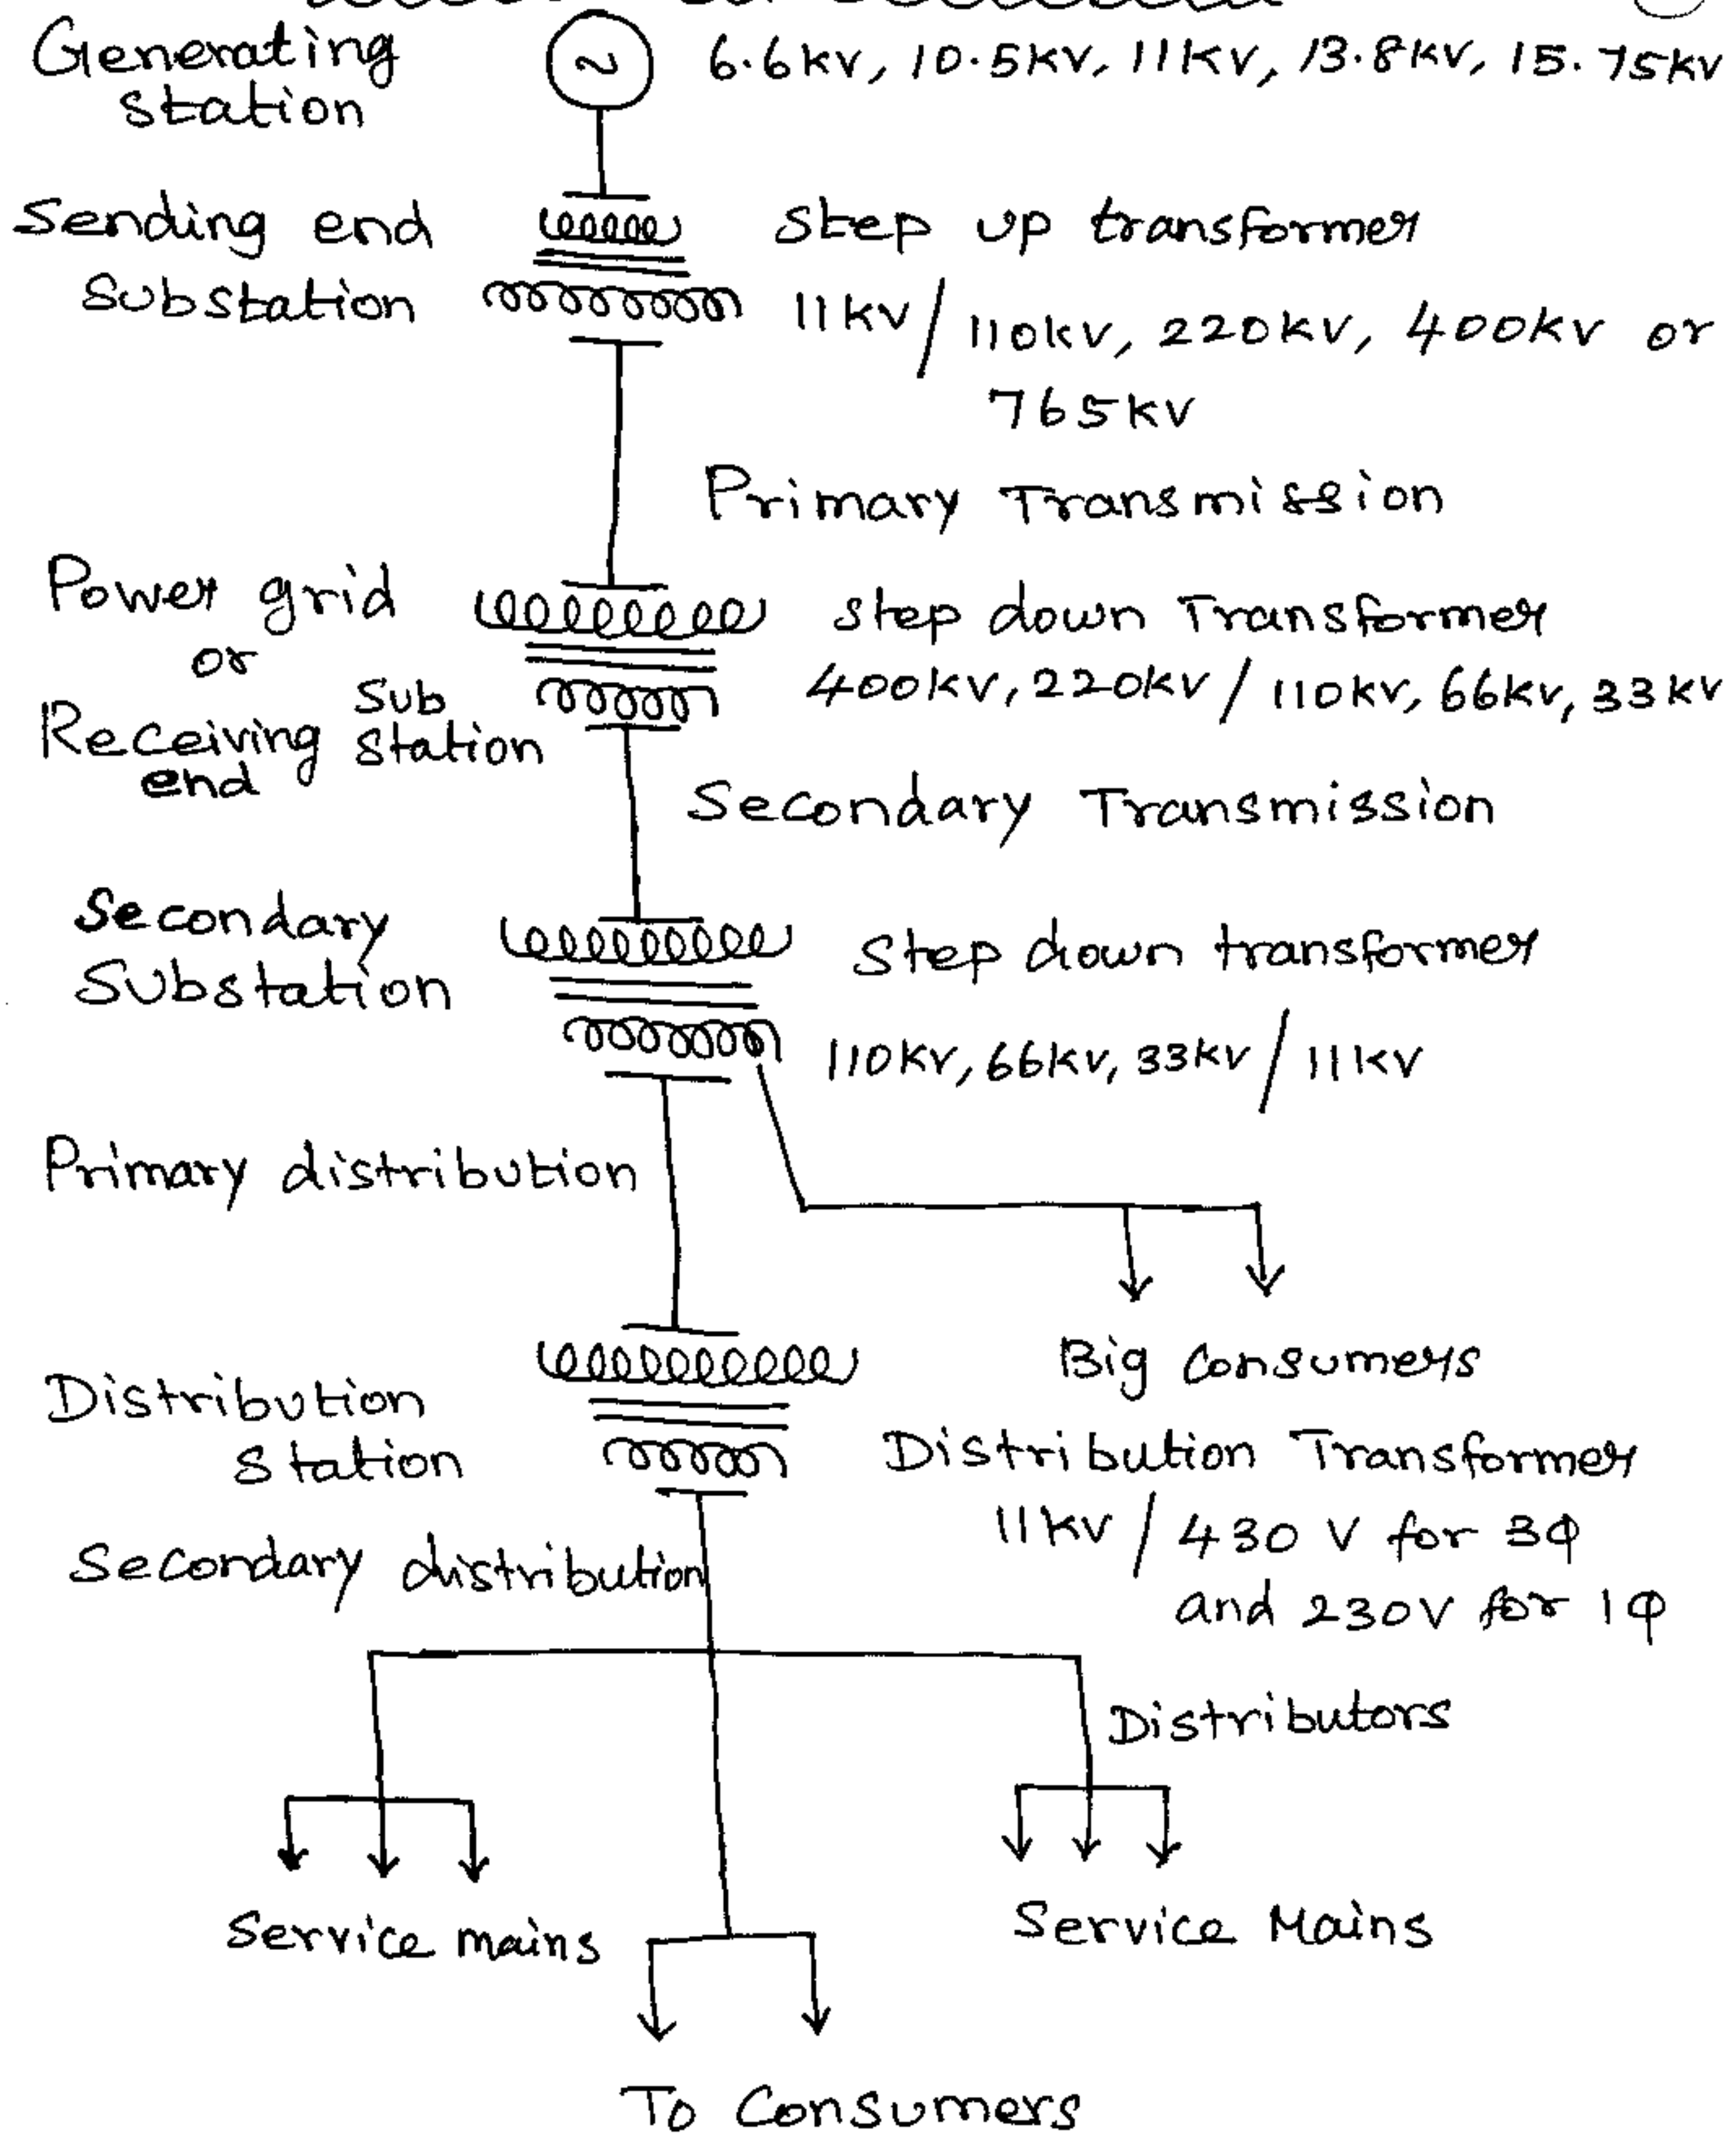 Generating
Station
6.6kv, 10.5kv, 11kv, 13.8kv, 15.75kv
Sending end
Substation
Step up transformer
11kv / 110kv, 220kv, 400kv or
765kv
Primary Transmission
Power grid
or
Receiving end
Sub
Station
Step down Transformer
400kv, 220kv / 110kv, 66kv, 33kv
Secondary Transmission
Secondary
Substation
Step down transformer
110kv, 66kv, 33kv / 11kv
Primary distribution
Big Consumers
Distribution
Station
Distribution Transformer
11kv / 430 V for 3φ
and 230V for 1φ
Secondary distribution
Distributors
Service mains
Service Mains
To Consumers